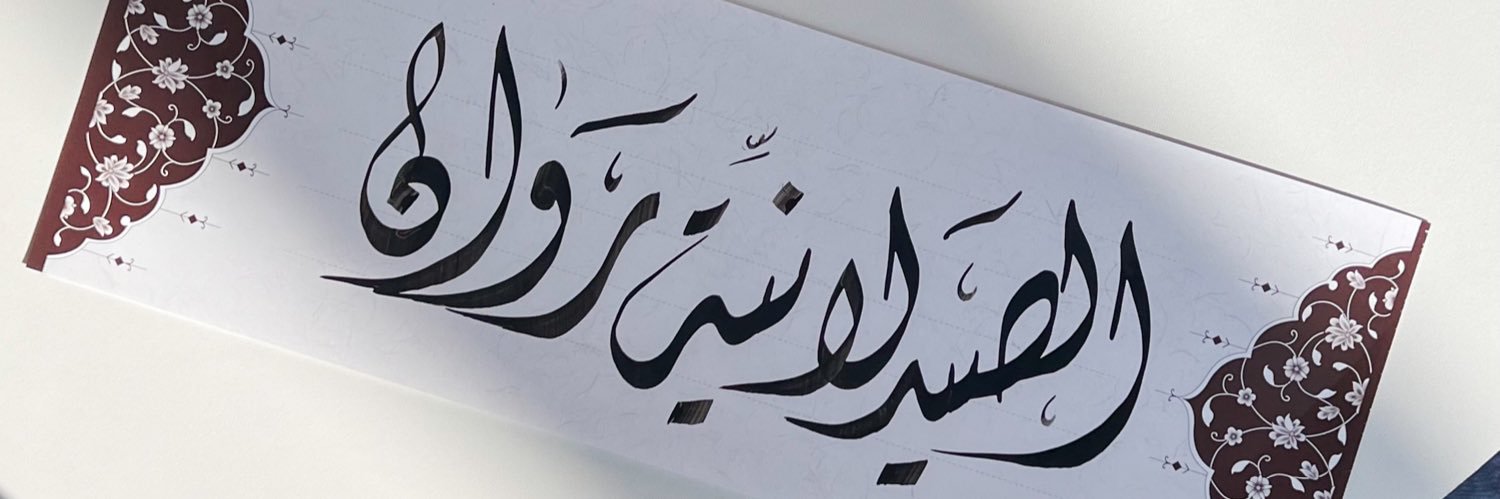 الصَيدلانيَّة رَوان